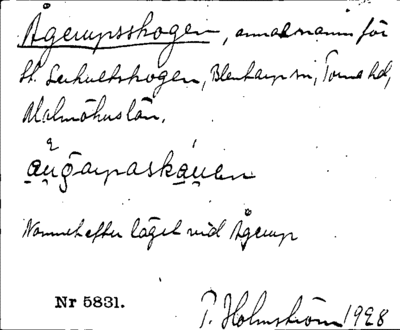 Ågerupsskogen, annat namn för
St. Schultskogen, Blentarp sn, Torna hd,
Malmöhus län.
Namnet efter läget vid Ågerup
Nr 5831.
P. Holmström 1928